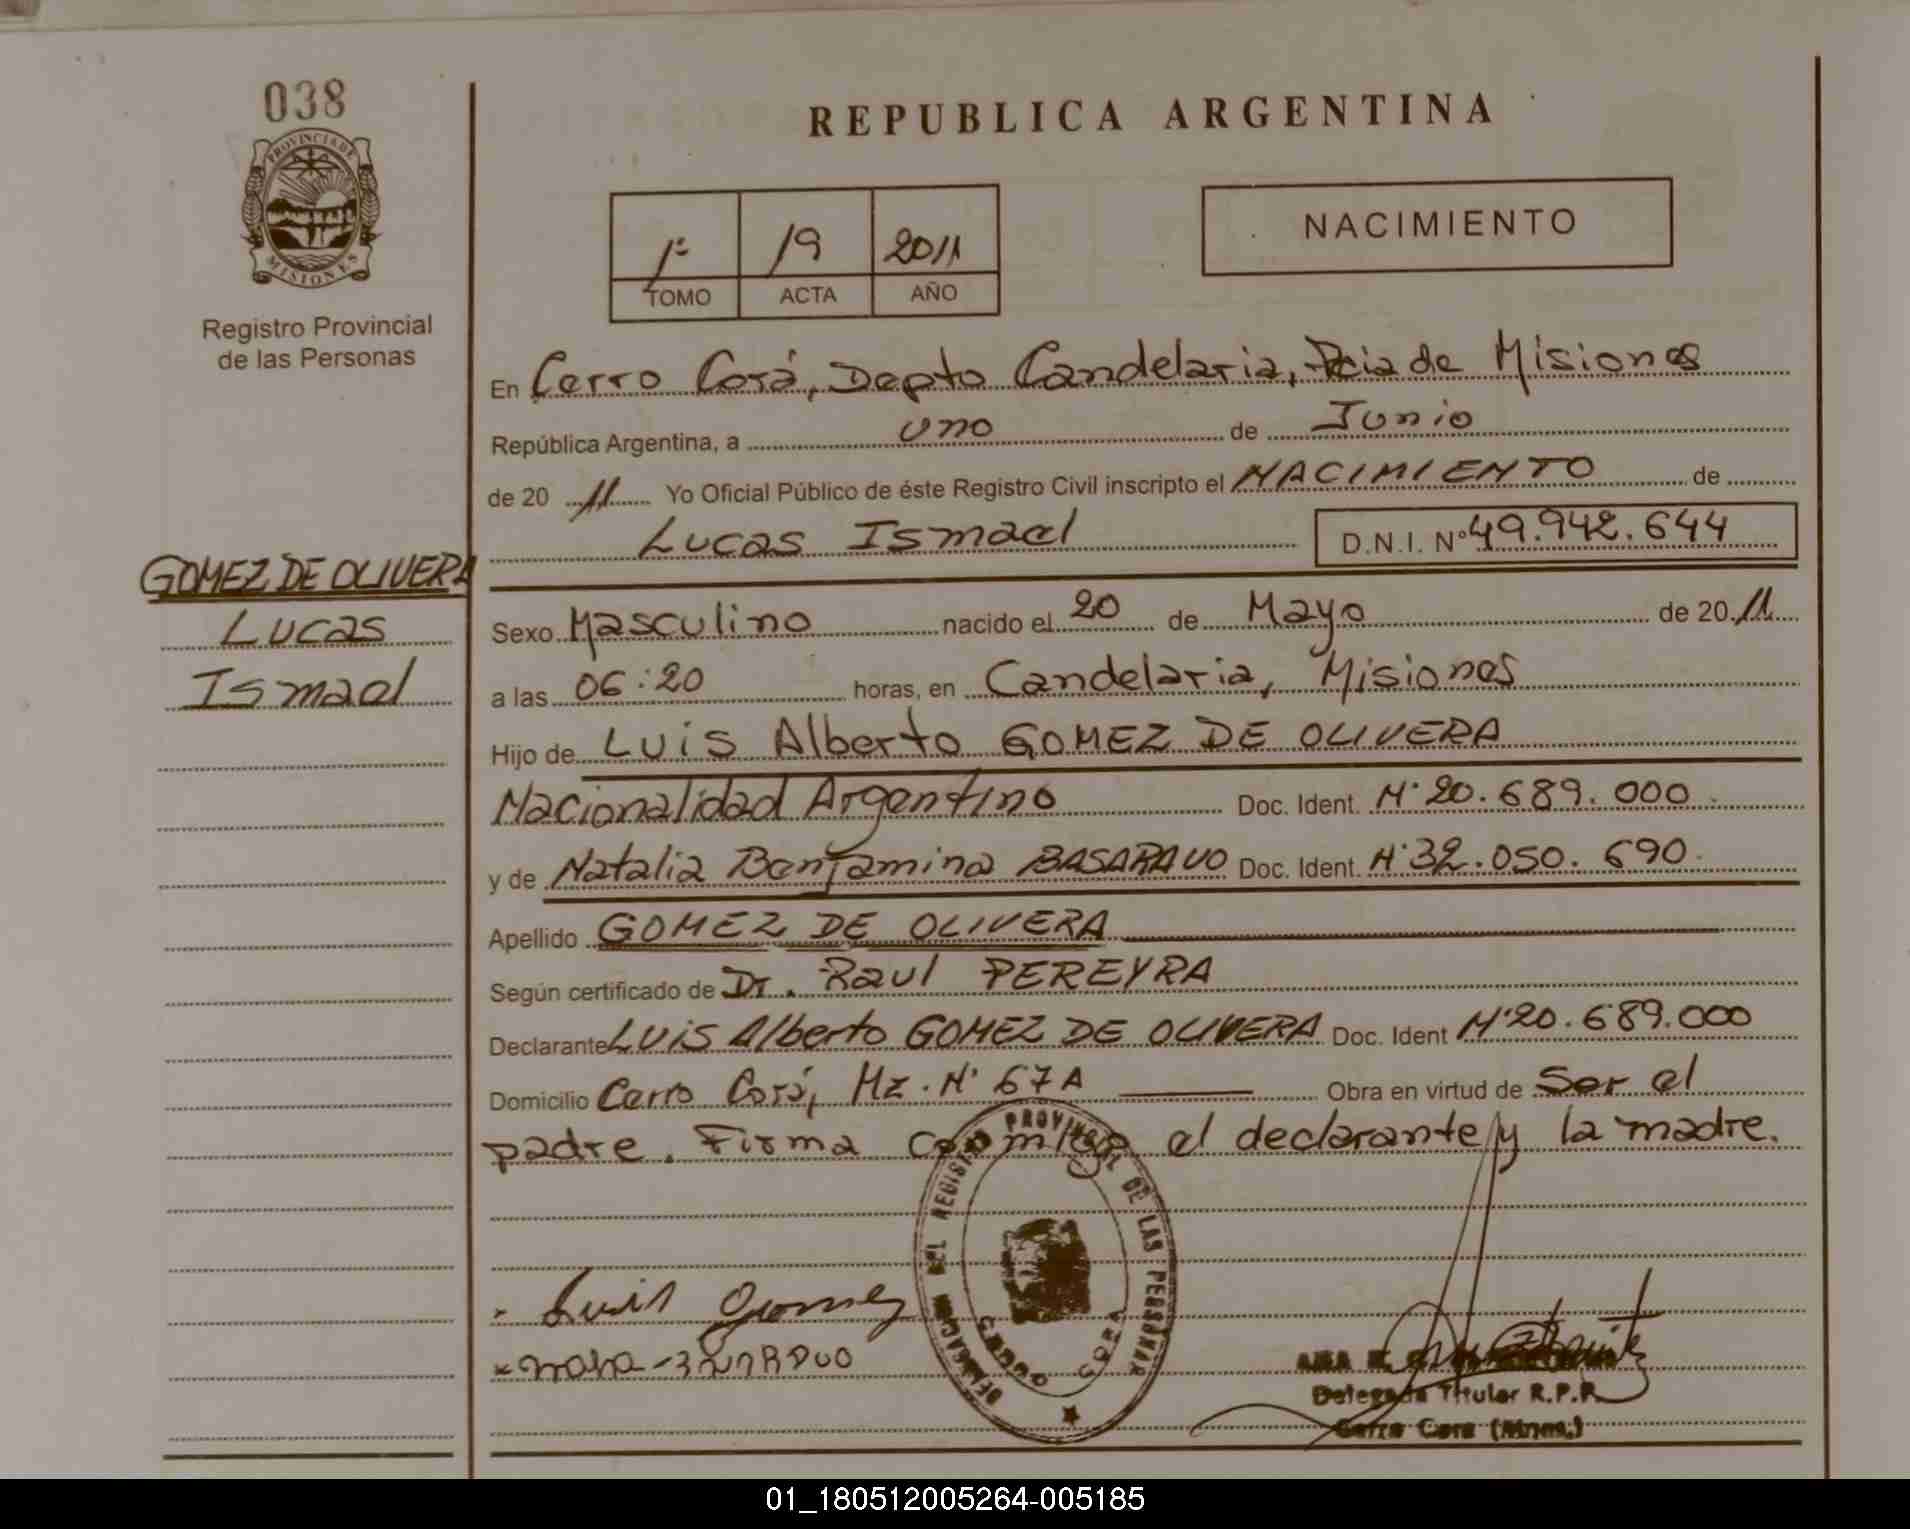 038
PROVINCIA DE
MISIONES
Registro Provincial
de las Personas
GOMEZ DE OLIVERA
Lucas
Ismael
REPUBLICA ARGENTINA
1º 19 2011
TOMO ACTA AÑO
NACIMIENTO
En Cerro Corá, Depto Candelaria, Pcia de Misiones
República Argentina, a uno de Junio
de 20 11 Yo Oficial Público de éste Registro Civil inscripto el NACIMIENTO de
Lucas Ismael D.N.I. Nº 49.942.644
Sexo Masculino nacido el 20 de Mayo de 20 11
a las 06:20 horas, en Candelaria, Misiones
Hijo de Luis Alberto GOMEZ DE OLIVERA
Nacionalidad Argentino Doc. Ident. Nº 20.689.000
y de Natalia Benjamina BASARAUO Doc. Ident. Nº 32.050.690
Apellido GOMEZ DE OLIVERA
Según certificado de Dr. Raul PEREYRA
Declarante Luis Alberto GOMEZ DE OLIVERA Doc. Ident Nº 20.689.000
Domicilio Cerro Corá, Mz. Nº 67A Obra en virtud de Ser el
padre. Firma conmigo el declarante y la madre.
DELEGACION DEL REGISTRO PROVINCIAL DE LAS PERSONAS
CERRO CORA
Luis Gomez
Delegada Titular R.P.P.
Cerro Cora (Mnes.)
01_180512005264-005185